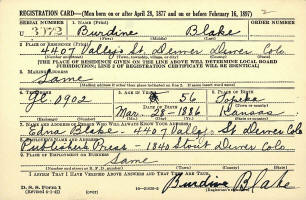 REGISTRATION CARD—(Men born on or after April 28, 1877 and on or before February 16, 1897)
SERIAL NUMBER 1. NAME (Print) ORDER NUMBER
U 3972 Burdine Blake
(First) (Middle) (Last)
2. PLACE OF RESIDENCE (Print)
4407 Vallejo St. Denver Denver Colo.
[THE PLACE OF RESIDENCE GIVEN ON THE LINE ABOVE WILL DETERMINE LOCAL BOARD
JURISDICTION; LINE 2 OF REGISTRATION CERTIFICATE WILL BE IDENTICAL]
3. MAILING ADDRESS
Same
4. TELEPHONE 5. AGE IN YEARS 6. PLACE OF BIRTH
Gl. 0902 56 Topeka
DATE OF BIRTH
Mar. 1886 Kansas
7. NAME AND ADDRESS OF PERSON WHO WILL ALWAYS KNOW YOUR ADDRESS
Edna Blake - 4407 Vallejo St Denver Colo
8. EMPLOYER'S NAME AND ADDRESS
Publishers Press - 1840 Stout Denver Colo.
9. PLACE OF EMPLOYMENT OR BUSINESS
Same
I AFFIRM THAT I HAVE VERIFIED ABOVE ANSWERS AND THAT THEY ARE TRUE.
D. S. S. Form 1
Burdine Blake